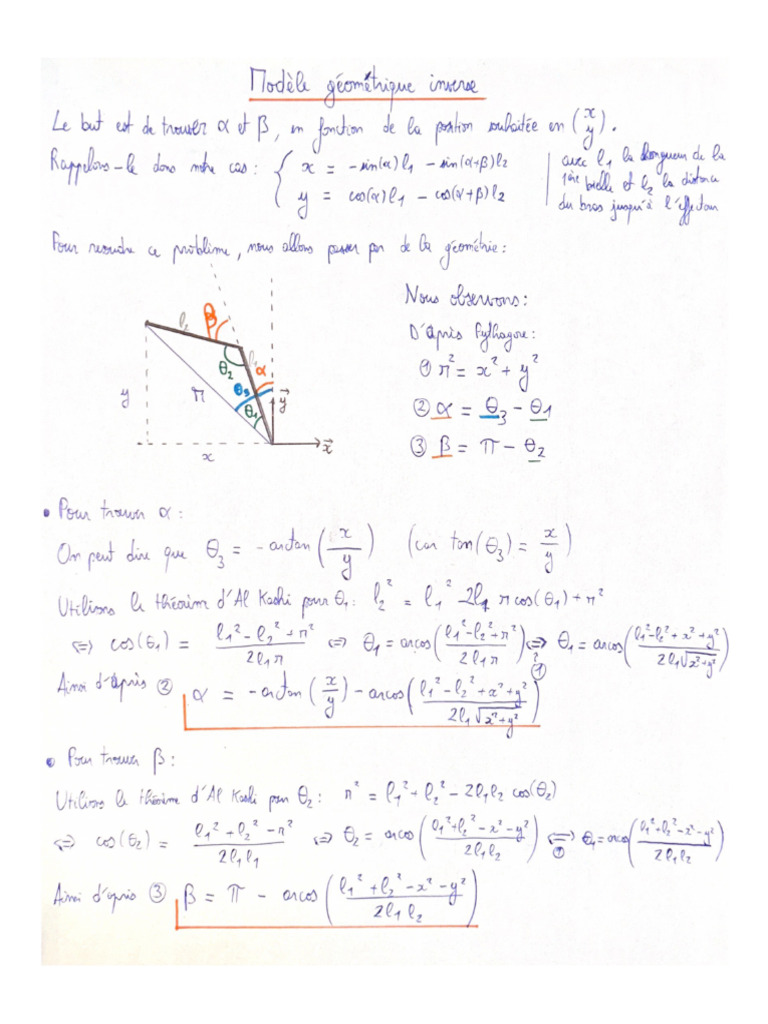 Modèle géométrique inverse
Le but est de trouver α et β, en fonction de la position souhaitée en (x y).
Rappelons-le dans notre cas : { x = -sin(α)l₁ - sin(α+β)l₂
y = cos(α)l₁ - cos(α+β)l₂
avec l₁ la longueur de la
1ère bielle et l₂ la distance
du bras jusqu'à l'effecteur
Pour resoudre ce problème, nous allons passer par de la géométrie :
l₂ β
l₁
θ₂ α
θ₃
y r θ₁ y⃗
x⃗
x
Nous observons :
D'après Pythagore :
① r² = x² + y²
② α = θ₃ - θ₁
③ β = π - θ₂
• Pour trouver α :
On peut dire que θ₃ = -arctan(x/y) (car tan(θ₃) = x/y)
Utilisons le théorème d'Al Kashi pour θ₁ : l₂² = l₁² - 2l₁ r cos(θ₁) + r²
⇔ cos(θ₁) = (l₁² - l₂² + r²)/(2l₁r) ⇔ θ₁ = arcos((l₁² - l₂² + r²)/(2l₁r)) ⇔ ① θ₁ = arcos((l₁² - l₂² + x² + y²)/(2l₁√(x²+y²)))
Ainsi d'après ② α = -arctan(x/y) - arcos((l₁² - l₂² + x² + y²)/(2l₁√(x²+y²)))
• Pour trouver β :
Utilisons le théorème d'Al Kashi pour θ₂ : r² = l₁² + l₂² - 2l₁l₂ cos(θ₂)
⇔ cos(θ₂) = (l₁² + l₂² - r²)/(2l₁l₁) ⇔ θ₂ = arcos((l₁² + l₂² - x² - y²)/(2l₁l₂)) ⇔ ① θ₁ = arcos((l₁² + l₂² - x² - y²)/(2l₁l₂))
Ainsi d'après ③ β = π - arcos((l₁² + l₂² - x² - y²)/(2l₁l₂))